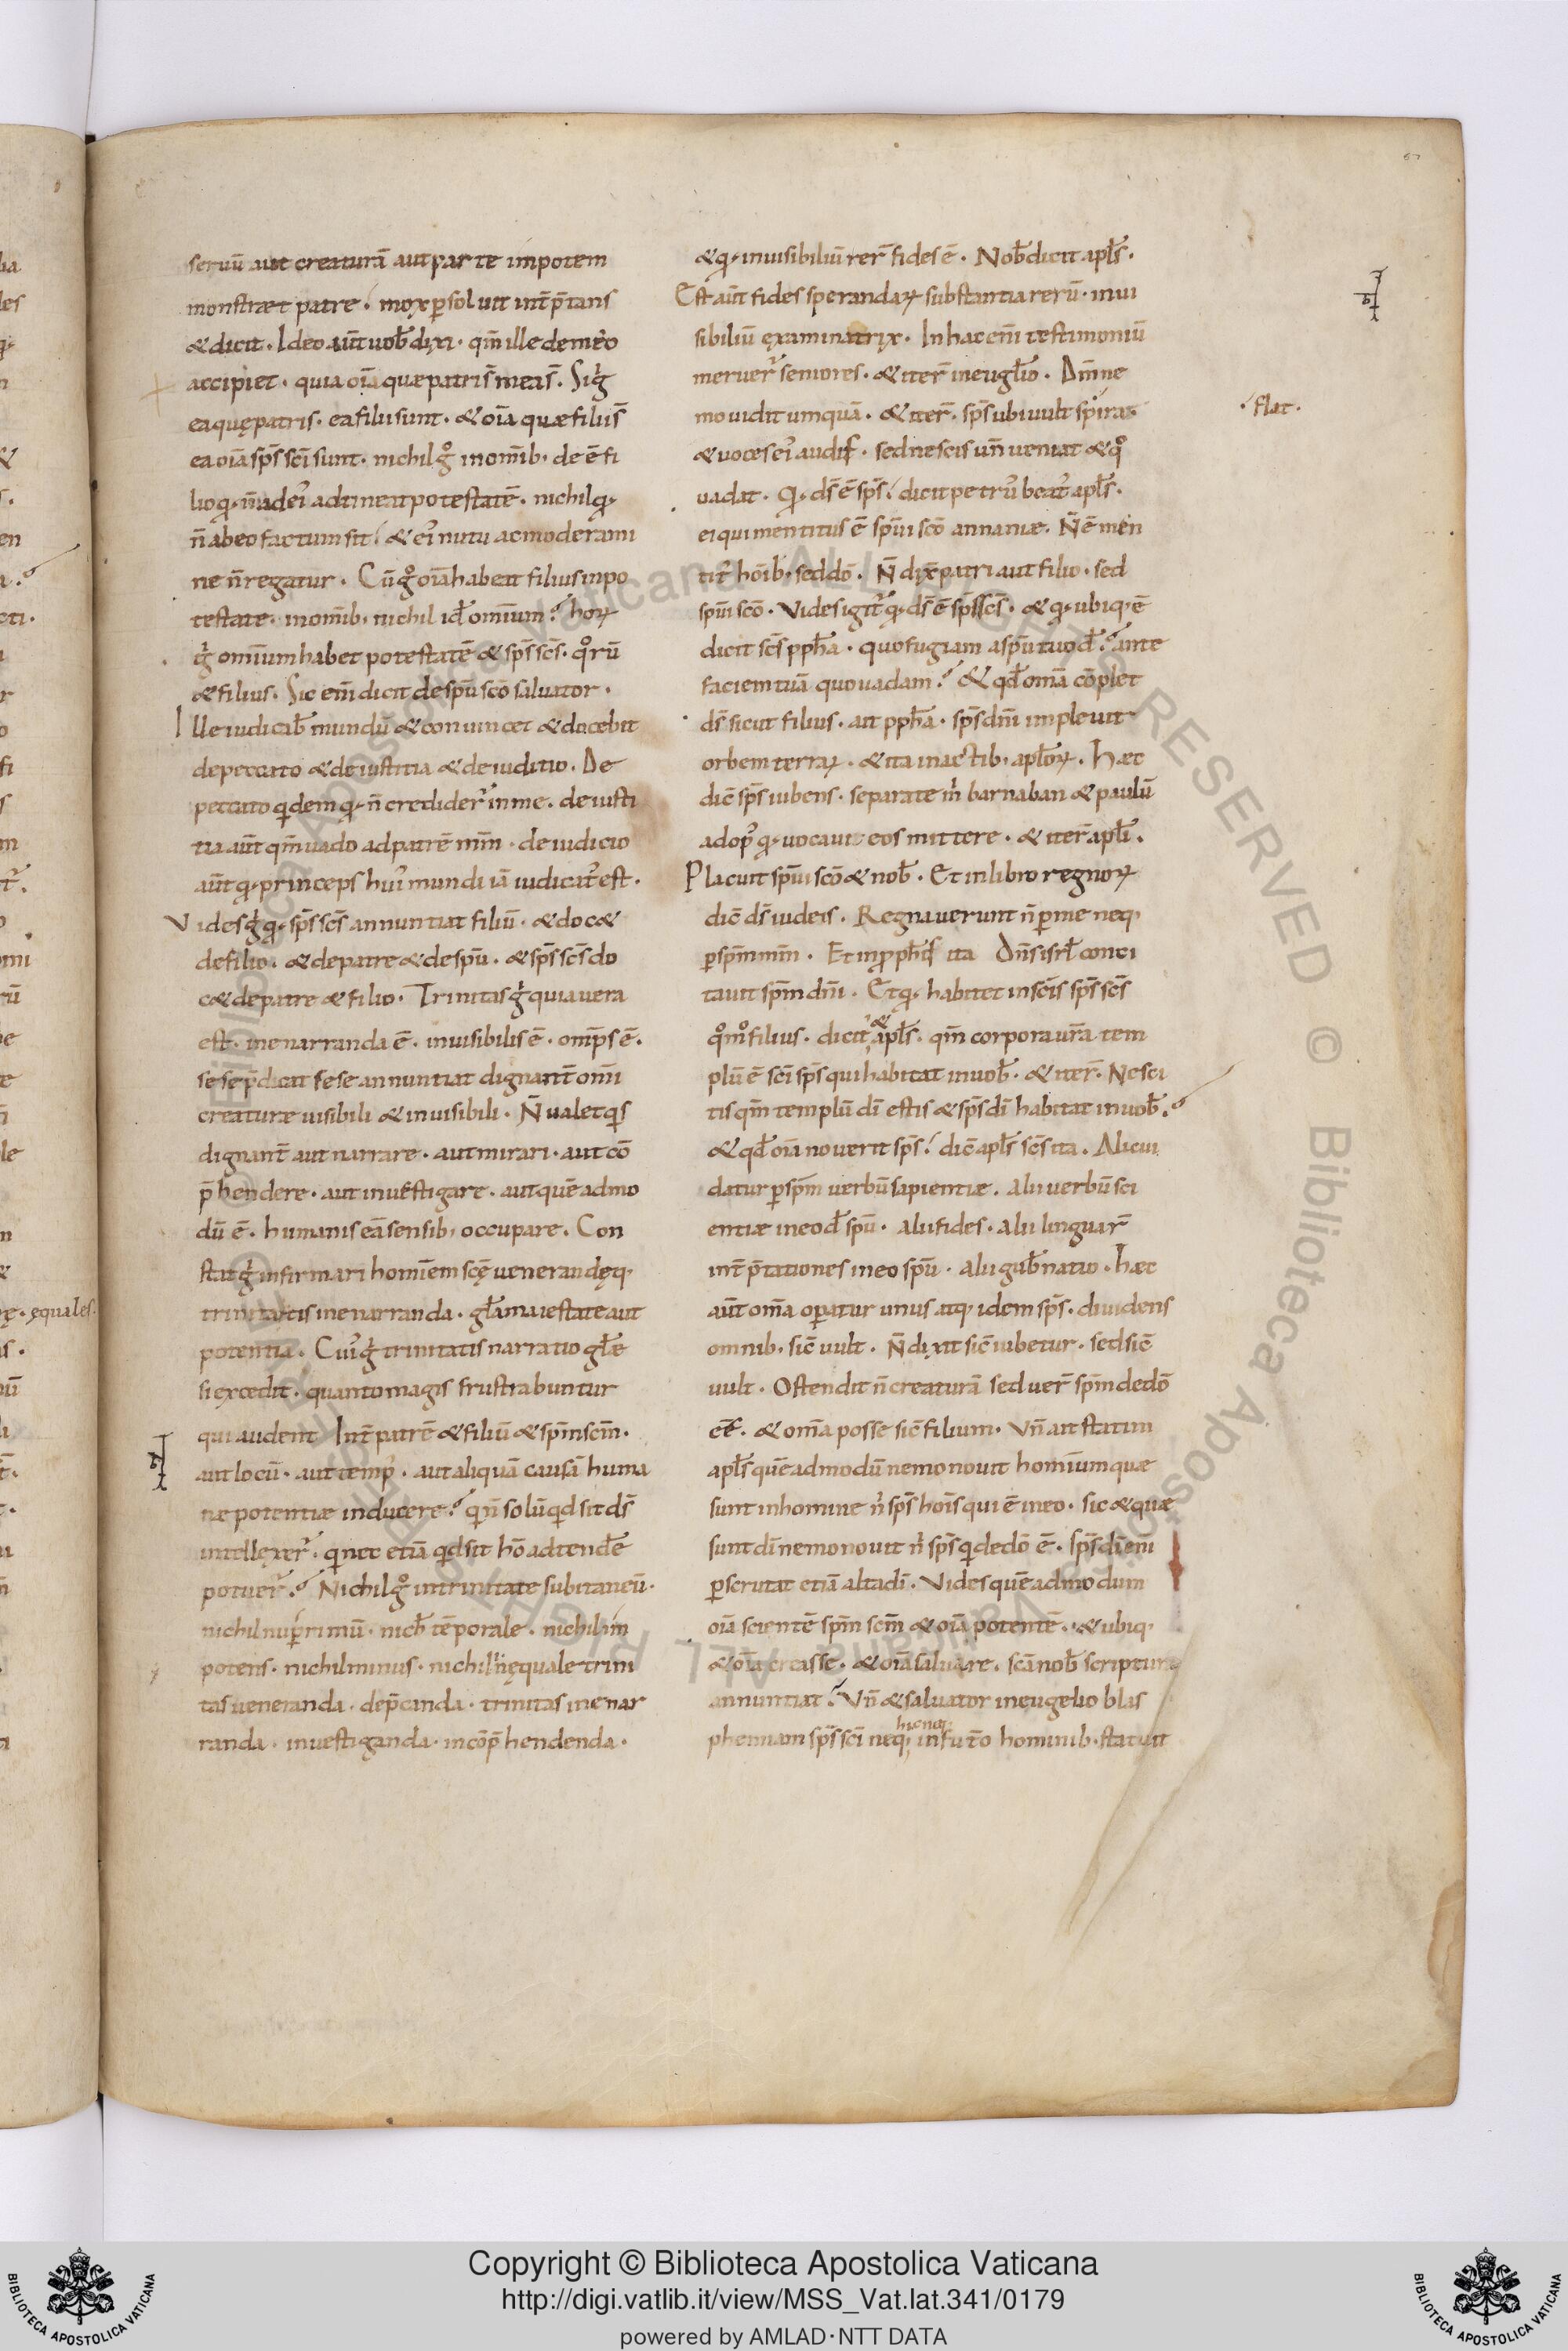 67
seruū aut creaturā aut parte impotem
monstraret patre? mox psoluit int̄p̄tans
& dicit. Ideo aūt uob̄ dixi. qm̄ ille de meo
accipiet. quia oīa quae patris meas̄. Sig̑
ea quę patris. ea filii sunt. & oīa quae filii s̄
ea oīa sp̄s sc̄i sunt. nichil gͦ in om̄ib; de ē fi
lio
n̄ ab eo factum sit? & ei᾽ nutu ac moderami
ne n̄ regatur. Cū gͦ oīa habeat filius in po
testate. in om̄ib; nichil id̄ omīum? hoꝝ
g̑ omīum habet potestatē & sp̄s sc̄s. qͦrū
& filius. Sic em̄ dicit de spū sc̄o saluator.
Ille iudicab̄ mundū & conuincet & docebit
de peccato & de iustitia & de iuditio. De
peccato qidem q; n̄ credider᷑ in me. de iusti
tia aūt qm̄ uado ad patrē mm̄. de iudicio
aūt q; princeps hui᾽ mundi iā iudicat᾽ est.
Vides g̑ q; sp̄s sc̄s annuntiat filiū. & doc&
de filio. & de patre & de spū. & sp̄s sc̄s do
c& de patre & filio. Trinitas g̑ quia uera
est. inenarranda ē. inuisibilis ē. omp̄s ē.
sese p̄dicat sese annuntiat dignant̄ omī
creaturae uisibili & inuisibili. N̄ ualet qis
dignant̄ aut narrare. aut mirari. aut cō
p̄hendere. aut inuestigare. aut quē admo
dū ē. humanis eā sensib; occupare. Con
stat g̑ infirmari homīem scę uenerandęq;
trinitatis inenarranda. gl̄a maiestate aut
potentia. Cui᾽ g̑ trinitatis narratio gl̄e
si excedit. quanto magis frustrabuntur
qui audent Int̄ patrē & filiū & spm̄ scm̄.
aut locū. aut temp᾽. aut aliquā causā huma
nae potentiae inducere? qi n̄ solū qid sit ds̄
intellęxer᷑. qi nec etiā qid sit hō adtend̄e
potuer᷑? Nichil gͦ in trinitate subitaneū.
nichil nup̄rimū. nich̄ tēporale. nichil im
potens. nichil minus. nichil n̄ ęquale trini
tas ueneranda. dep̄canda. trinitas inenar
randa. inuestiganda. incōp̄hendenda.
& q; inuisibiliū rer᷑ fides ē. Nob̄ dicit apl̄s.
Est aūt fides sperandaꝝ substantia rerū. inui
sibiliū ęxaminatrix. In hac em̄ testimoniū
meruer᷑ seniores. & iter᷑ in eugl̄io. Dm̄ ne
mo uidit umquā. & iter᷑. sp̄s ubi uult spirat.
.flat.
& uoces ei᾽ audis. sed nescis un̄ ueniat & qͦ
uadat. Q; ds̄ ē sp̄s? dicit petrū beat᾽ apl̄s.
ei qui mentitus ē spūi sc̄o annaniae. N̄ ē men
tit᾽ hōib. sed dō. N̄ dix̄ patri aut filio. sed
spūi sc̄o. Vides igit᷑ q; ds̄ ē sp̄s sc̄s. & q; ubiq; ē
dicit sc̄s pph̄a. quo fugiam a spū tuo d̄s? ante
faciem tuā quo uadam? & qd̄ omā cōplet
ds̄ sicut filius. ait pph̄a. sp̄s dn̄i impleuit
orbem terraꝝ. & ita in actib; apl̄oꝝ. Haec
dic̄ sp̄s iubens. separate m̄ barnaban & paulū
ad op᾽ q; uocaui eos mittere. & iter᷑ apl̄i.
Placuit spūi sc̄o & nob̄. Et in libro regnoꝝ
dic̄ ds̄ iudeis. Regnauerunt n̄ p me neq;
p spm̄ mm̄. ita Dn̄s isrl̄ conci
tauit spm̄ dn̄i. Et q; habitet in sc̄is sp̄s sc̄s
qͦmͦ filius. dicit & apl̄s. qm̄ corpora ur̄a tem
plū ē sc̄i sp̄s qui habitat in uob̄. & iter᷑. Nesci
tis qm̄ templū dī estis & sp̄s dī habitat in uob̄?
& qd̄ oīa nouerit sp̄s? dic̄ apl̄s sc̄s ita. Alicui
datur p spm̄ uerbū sapientiae. alii uerbū sci
entiae in eod̄ spū. alii fides. alii linguar᷑
int̄p̄tationes in eo spū. alii gub̄natio. Haec
aūt om̄a opatur unus atq; idem sp̄s. diuidens
omnib; sic̄ uult. N̄ dixit sic̄ iubetur. sed sic̄
uult. Ostendit n̄ creaturā sed uer᷑ spm̄ de dō
ee᷑. & om̄a posse sic̄ filium. Vn̄ ait statim
apl̄s quē admodū nemo nouit homīum quae
sunt in homine n᾽ sp̄s hoīs qui ē in eo. sic & quae
sunt dī nemo nouit n᾽ sp̄s qi de dō ē. sp̄s dī em̄
pscrutat etiā alta dī. Vides quē ad modum
oīa scientē spm̄ scm̄ & oīa potentē. & ubiq;
& oīa creasse. & oīa saluare. sc̄a nob̄ scriptura
annuntiat? Vn̄ & saluator in eugelio blas
phemiam sp̄s sc̄i neq; hic neq; in fut̄o hominib. statuit
ęquales.
Copyright © Biblioteca Apostolica Vaticana
http://digi.vatlib.it/view/MSS_Vat.lat.341/0179
powered by AMLAD·NTT DATA
BIBLIOTECA APOSTOLICA VATICANA
BIBLIOTECA APOSTOLICA VATICANA